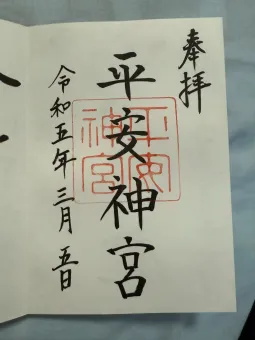 奉拝
平安神宮
令和五年三月五日
平安神宮